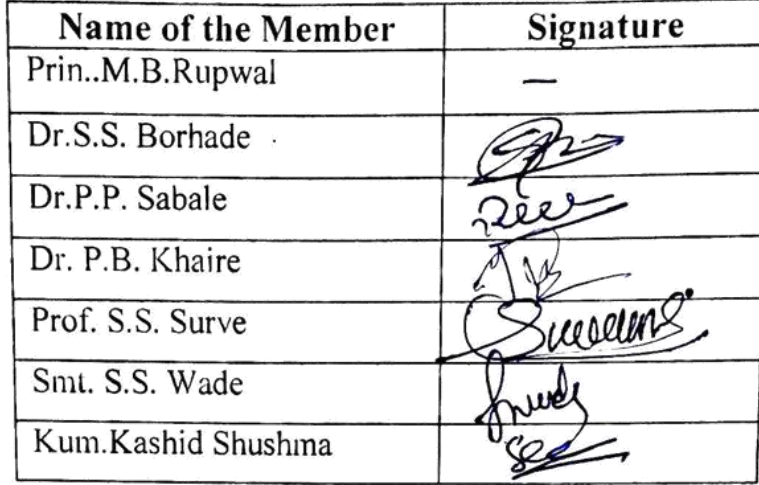 Name of the Member Signature
Prin..M.B.Rupwal –
Dr.S.S. Borhade
Dr.P.P. Sabale
Dr. P.B. Khaire
Prof. S.S. Surve
Smt. S.S. Wade
Kum.Kashid Shushma